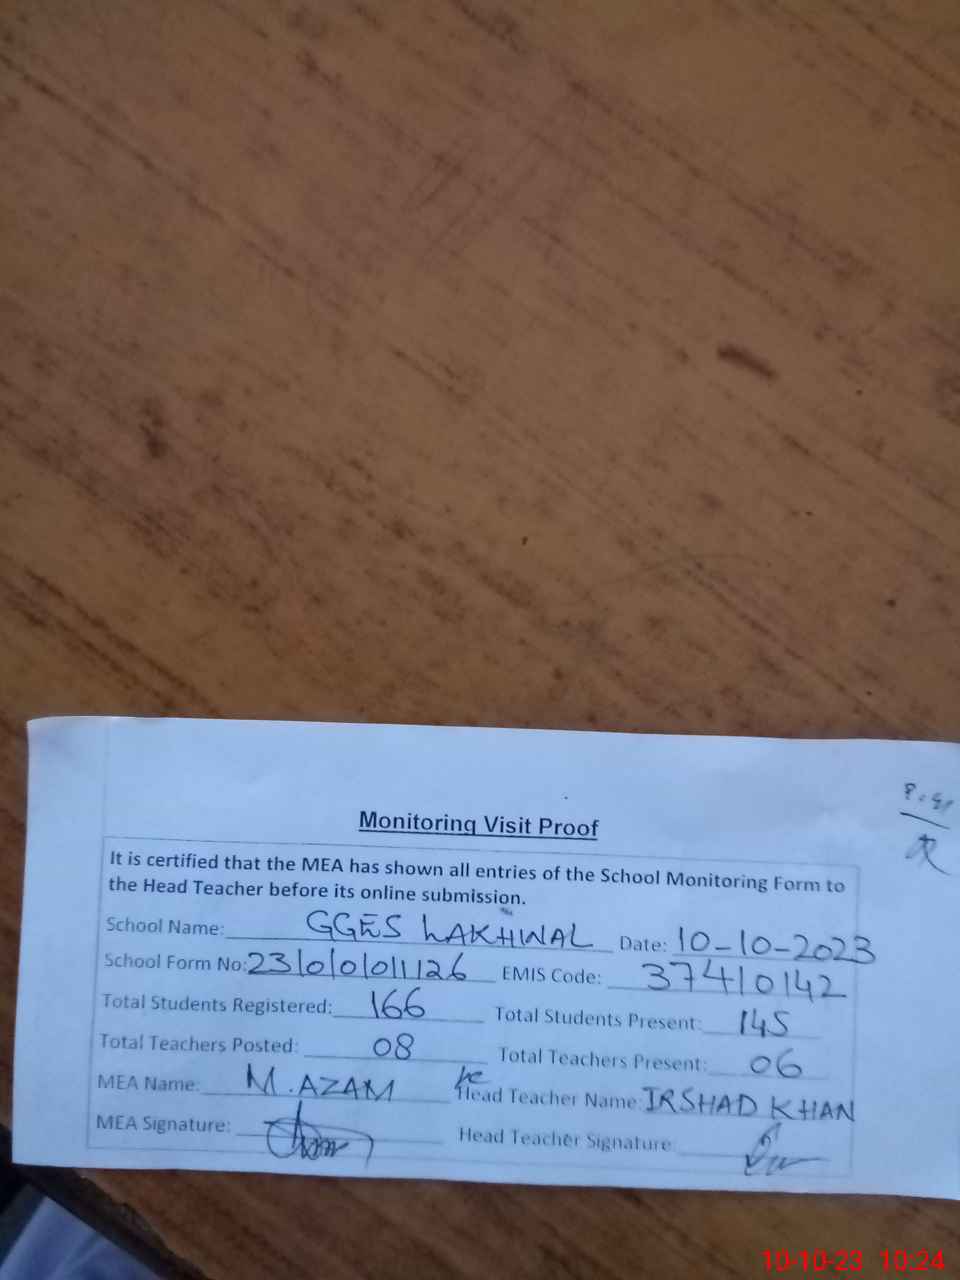 Monitoring Visit Proof
It is certified that the MEA has shown all entries of the School Monitoring Form to
the Head Teacher before its online submission.
School Name: GGES LAKHWAL Date: 10-10-2023
School Form No: 23101010111126 EMIS Code: 37410142
Total Students Registered: 166 Total Students Present: 145
Total Teachers Posted: 08 Total Teachers Present: 06
MEA Name: M. AZAM Head Teacher Name: IRSHAD KHAN
MEA Signature: Head Teacher Signature:
10-10-23 10:24